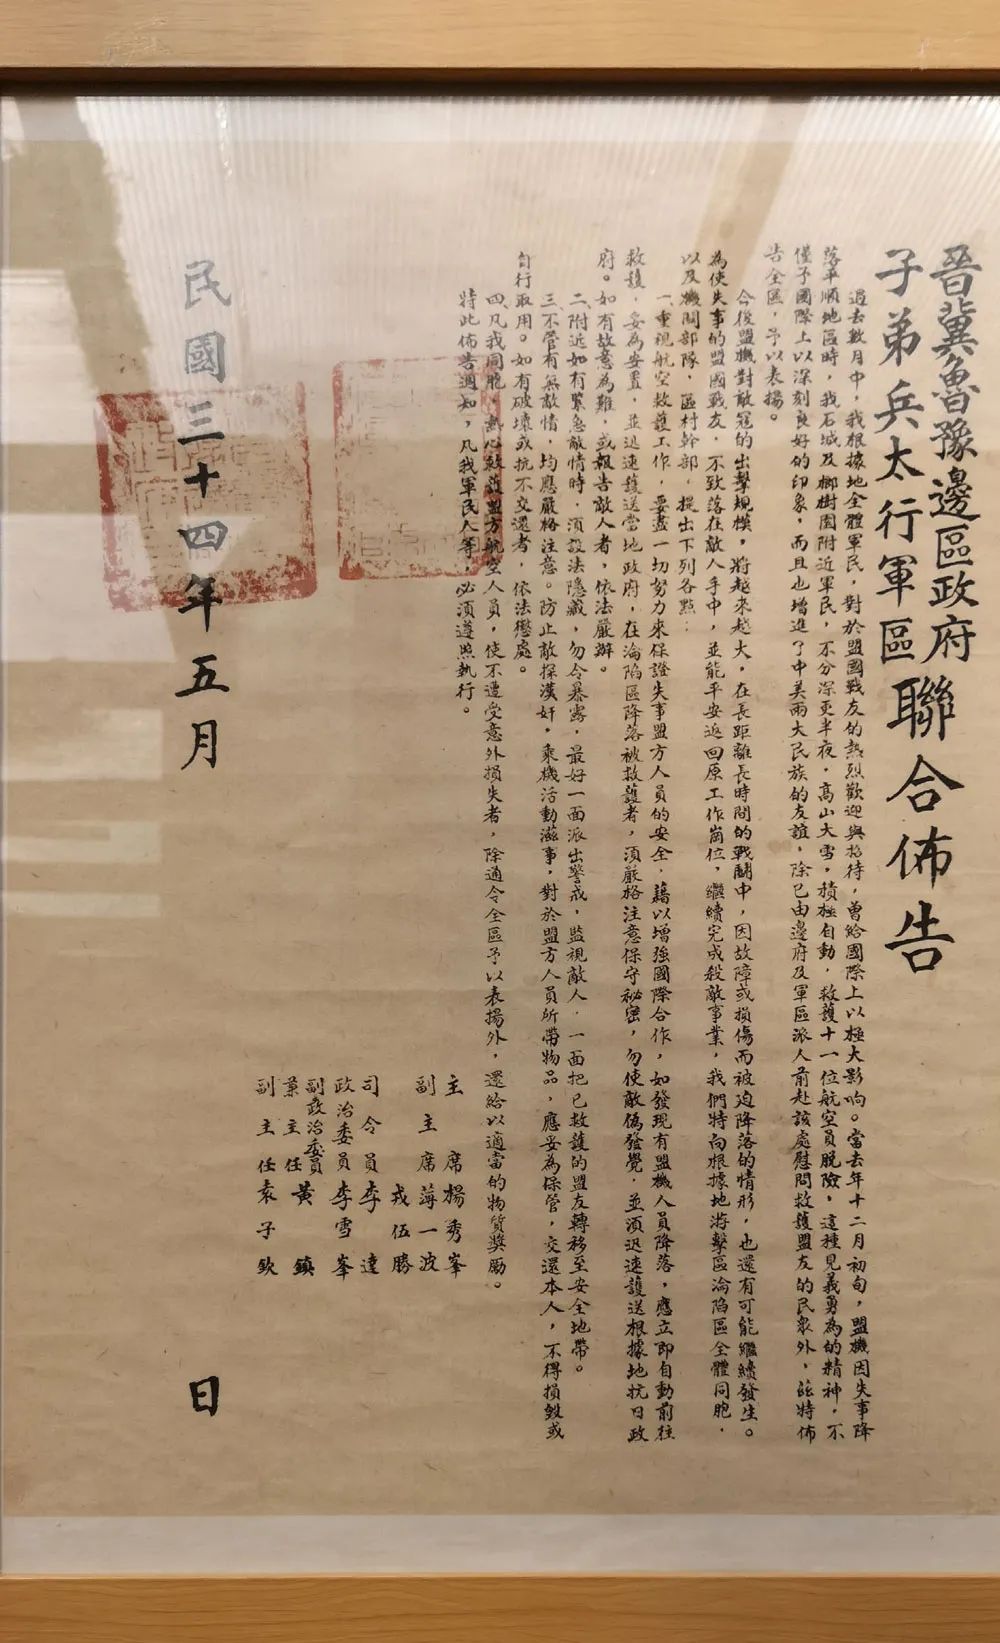 晉冀魯豫邊區政府
子弟兵太行軍區
聯合佈告
過去數月中，我根據地全體軍民，對於盟國戰友的熱烈歡迎與招待，曾給國際上以極大影响。當去年十二月初旬，盟機因失事降
落平順地區時，我石城及榔樹園附近軍民，不分深更半夜，高山大雪，積極自動，救護十一位航空員脫險，這種見義勇為的精神，不
僅予國際上以深刻良好的印象，而且也增進了中美兩大民族的友誼，除已由邊府及軍區派人前赴該處慰問救護盟友的民衆外，茲特佈
告全區，予以表揚。
今後盟機對敵寇的出擊規模，將越來越大，在長距離長時間的戰鬭中，因故障或損傷而被迫降落的情形，也還有可能繼續發生。
為使失事的盟國戰友，不致落在敵人手中，並能平安返回原工作崗位，繼續完成殺敵事業，我們特向根據地游擊區淪陷區全體同胞，
以及機關部隊，區村幹部，提出下列各點：
一、重視航空救護工作，要盡一切努力來保證失事盟方人員的安全，藉以增強國際合作，如發現有盟機人員降落，應立即自動前往
救護，妥為安置，並迅速護送當地政府，在淪陷區降落被救護者，須嚴格注意保守祕密，勿使敵偽發覺，並須迅速護送根據地抗日政
府。如有故意為難，或報告敵人者，依法嚴辦。
二、附近如有緊急敵情時，須設法隱藏，勿令暴露，最好一面派出警戒，監視敵人，一面把已救護的盟友轉移至安全地帶。
三、不管有無敵情，均應嚴格注意。防止敵探漢奸，乘機活動滋事，對於盟方人員所帶物品，應妥為保管，交還本人，不得損毀或
自行取用。如有破壞或抗不交還者，依法懲處。
四、凡我同胞，熱心救護盟方航空人員，使不遭受意外損失者，除通令全區予以表揚外，還給以適當的物質獎勵。
特此佈告週知，凡我軍民人等，必須遵照執行。
主席楊秀峯
副主席薄一波
戎伍勝
司令員李達
政治委員李雪峯
副政治委員
兼主任黃鎮
副主任袁子欽
民國三十四年五月日